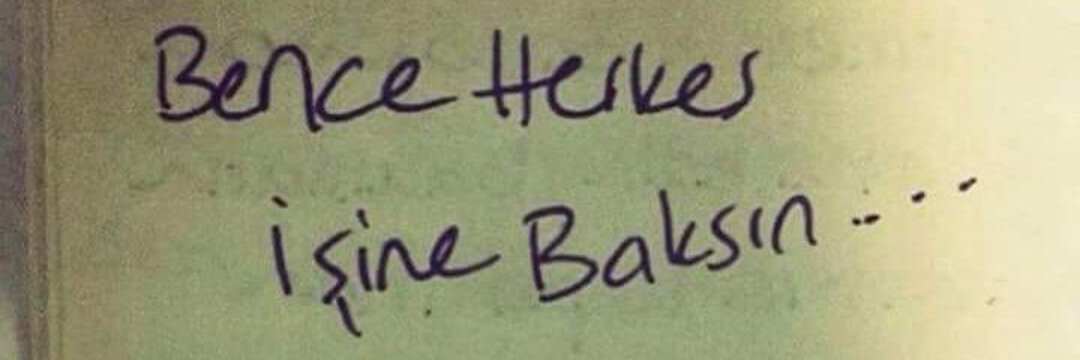 Bence Herkes
işine Baksın....